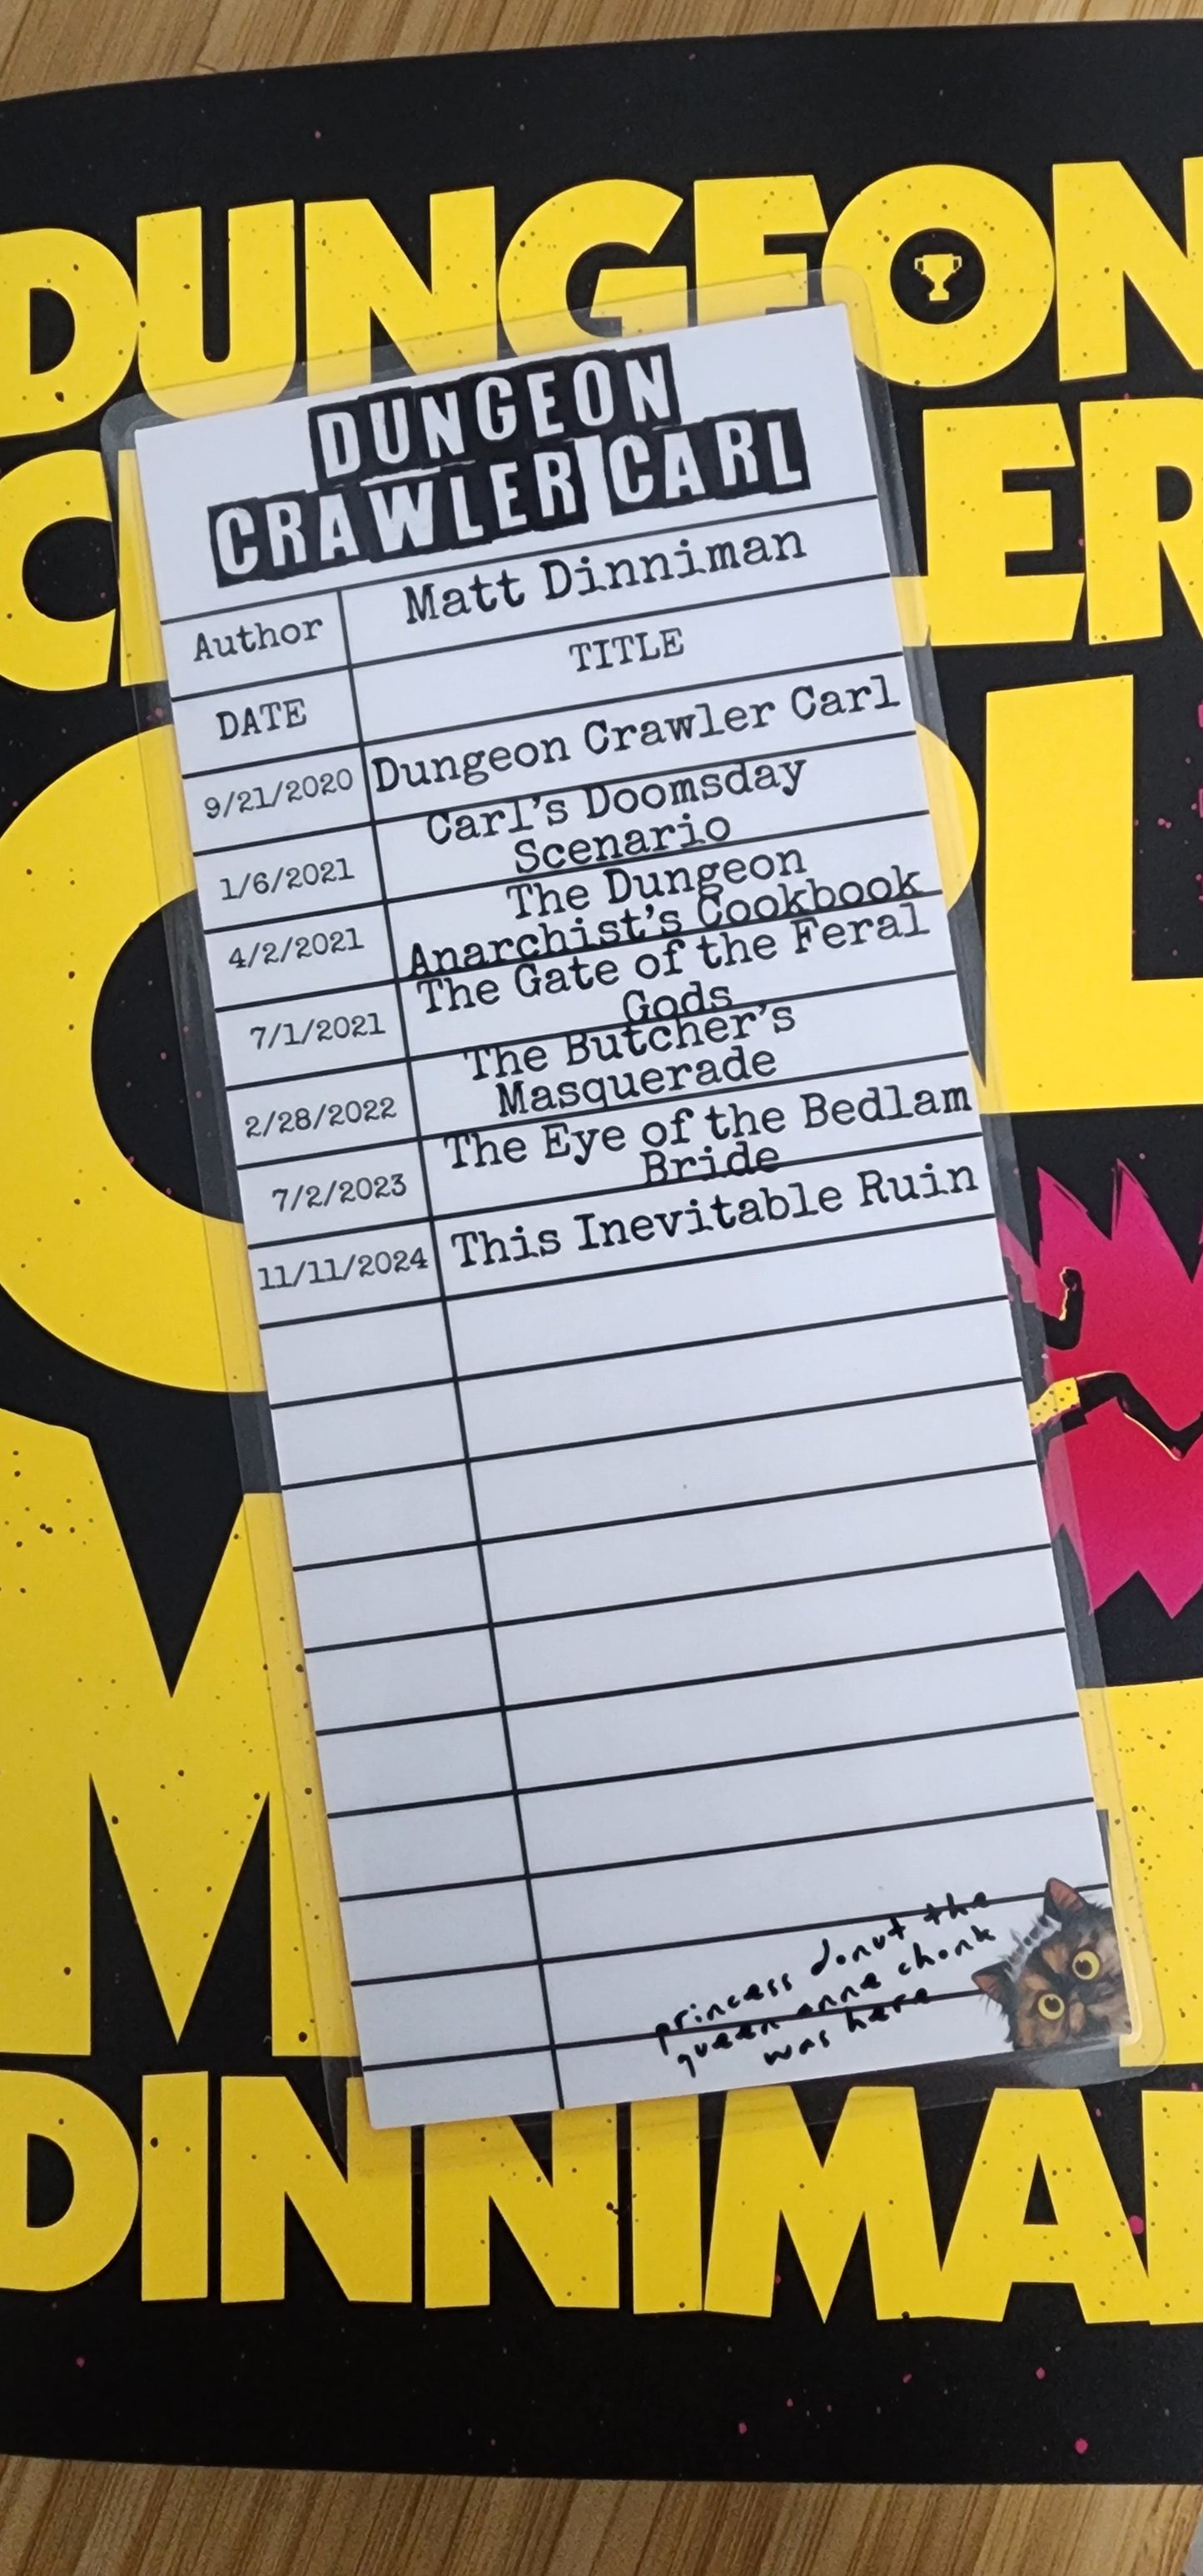 DUNGEON
DUNGEON
CRAWLER CARL
Author Matt Dinniman
DATE TITLE
9/21/2020 Dungeon Crawler Carl
1/6/2021 Carl's Doomsday
Scenario
4/2/2021 The Dungeon
Anarchist's Cookbook
7/1/2021 The Gate of the Feral
Gods
2/28/2022 The Butcher's
Masquerade
7/2/2023 The Eye of the Bedlam
Bride
11/11/2024 This Inevitable Ruin
princess donut the
queen anne chonk
was here
DINNIMA